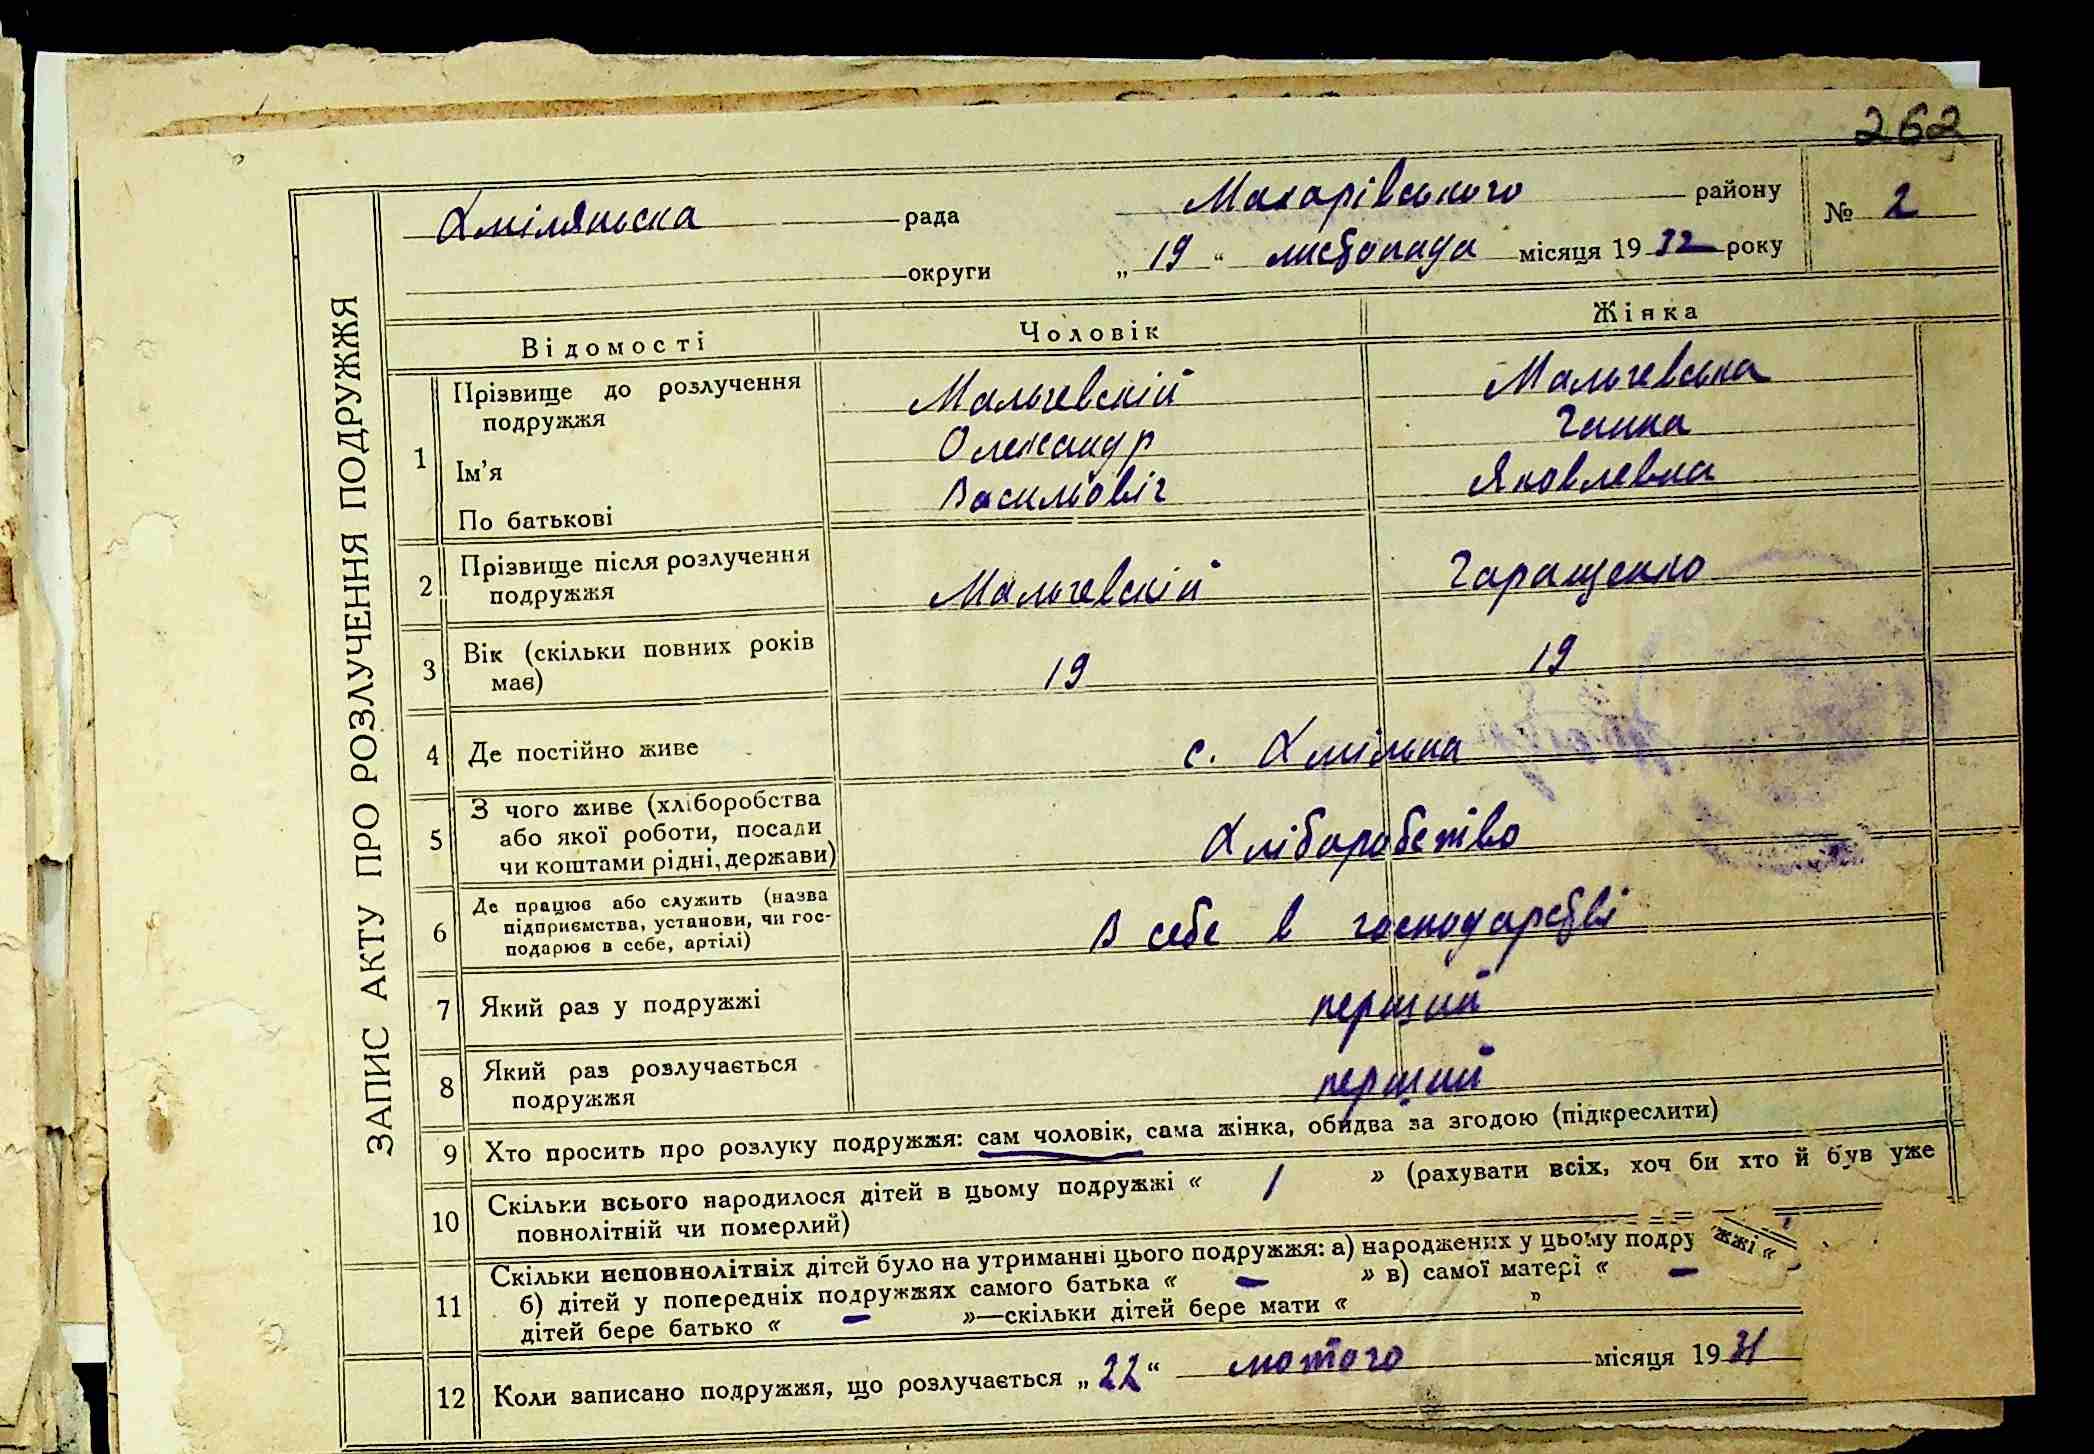 262
ЗАПИС АКТУ ПРО РОЗЛУЧЕННЯ ПОДРУЖЖЯ
Хмілянська рада Макарівського району № 2
округи „ 19 “ листопада місяця 19 32 року
Відомості Чоловік Жінка
1 Прізвище до розлучення подружжя Мальчевскій Мальчевська
Ім’я Олександр Ганна
По батькові Васильовіч Яковлевна
2 Прізвище після розлучення подружжя Мальчевскій Гаращенко
3 Вік (скільки повних років має) 19 19
4 Де постійно живе с. Хмільна
5 З чого живе (хліборобства
або якої роботи, посади
чи коштами рідні, держави) Хліборобство
6 Де працює або служить (назва
підприємства, установи, чи гос-
подарює в себе, артілі) В себе в господарстві
7 Який раз у подружжі перший
8 Який раз розлучається
подружжя перший
9 Хто просить про розлуку подружжя: сам чоловік, сама жінка, обидва за згодою (підкреслити)
10 Скільки всього народилося дітей в цьому подружжі « 1 » (рахувати всіх, хоч би хто й був уже
повнолітній чи померлий)
11 Скільки неповнолітніх дітей було на утриманні цього подружжя: а) народжених у цьому подружжі «
б) дітей у попередніх подружжях самого батька « — » в) самої матері « —
дітей бере батько « — »—скільки дітей бере мати « »
12 Коли записано подружжя, що розлучається „ 22 “ лютого місяця 19 31